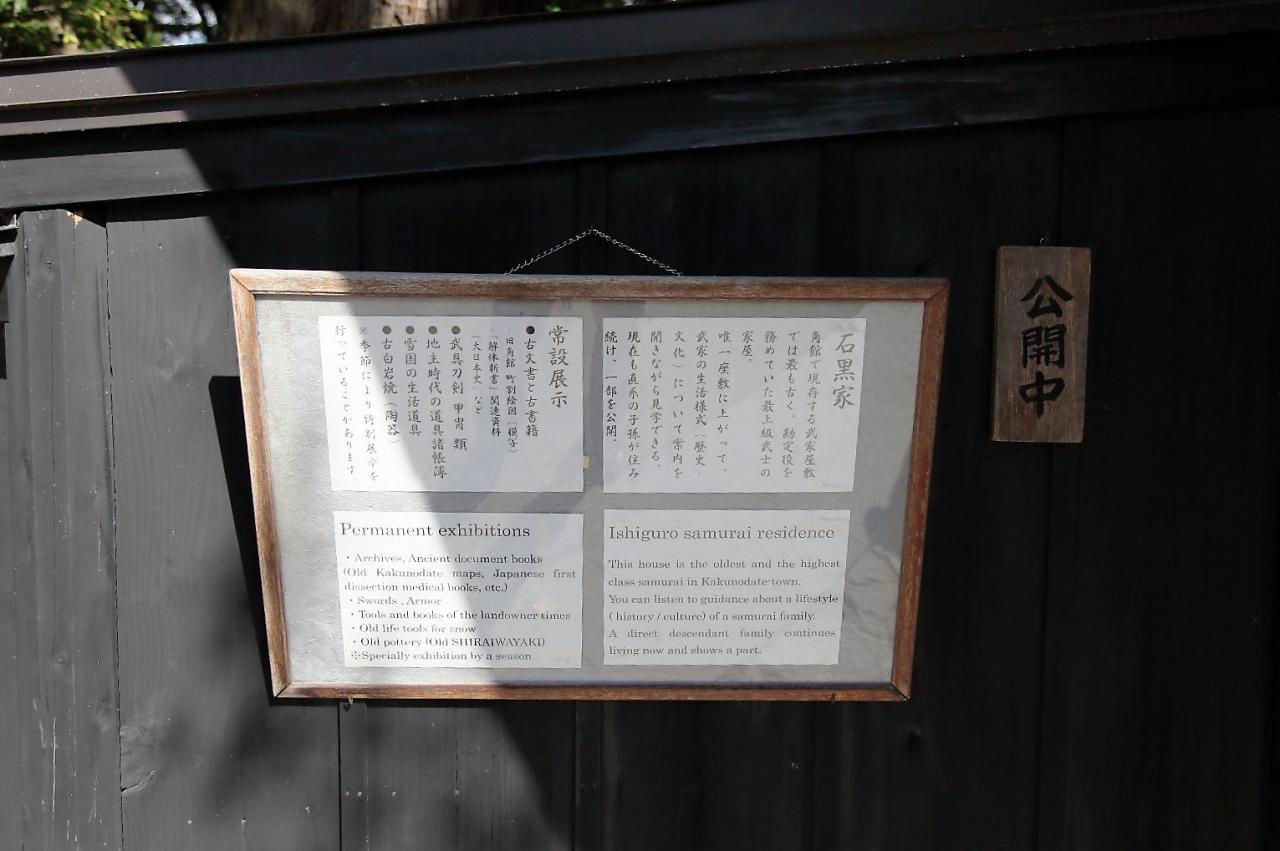 公開中
石黒家
角館で現存する武家屋敷
では最も古く、勘定役を
務めていた最上級武士の
家屋。
唯一座敷に上がって、
武家の生活様式（歴史・
文化）について案内を
聞きながら見学できる。
現在も直系の子孫が住み
続け、一部を公開。
常設展示
●古文書と古書籍
・旧角館 町割絵図（模写）
・「解体新書」関連資料
・「大日本史」など
●武具刀剣 甲冑 類
●地主時代の道具諸帳簿
●雪国の生活道具
●古白岩焼（陶器）
※季節により特別展示を
行っていることがあります。
Ishiguro samurai residence
This house is the oldest and the highest
class samurai in Kakunodate-town.
You can listen to guidance about a lifestyle
( history / culture) of a samurai family.
A direct descendant family continues
living now and shows a part.
Permanent exhibitions
・Archives, Ancient document books
(Old Kakunodate maps, Japanese first
dissection medical books, etc.)
・Swords , Armor
・Tools and books of the landowner times
・Old life tools for snow
・Old pottery (Old SHIRAIWAYAKI)
※Specially exhibition by a season